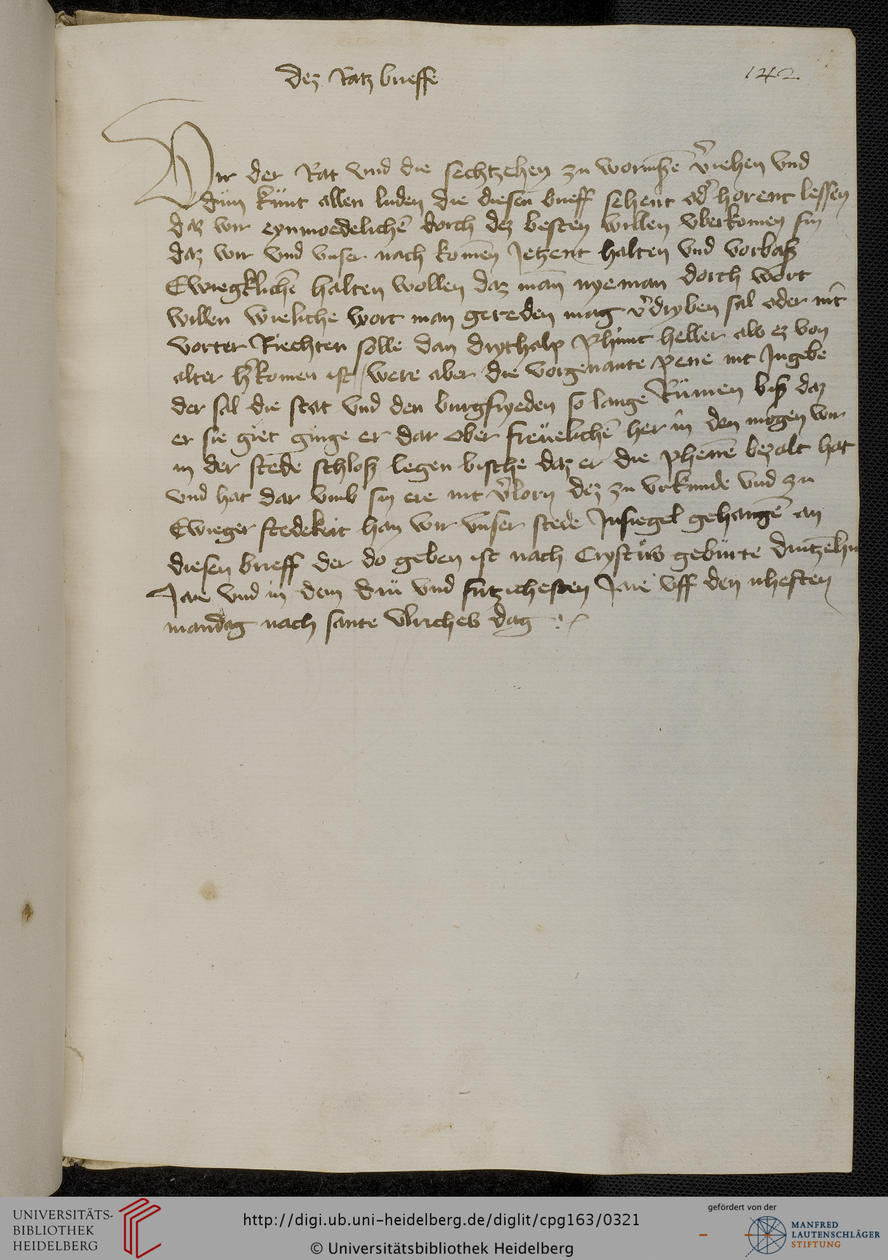 dez Ratz brieffe
142
Wir der Rat vnd die sechtzehen zu wormße v̾iehen vnd
dün künt allen luden die diesen brieff sehent od̾ horent lessen
daz wir eynmoedeliche dorch dez besten willen vberkomen sin
daz wir vnd vnser nach komen Jetzent halten vnd vorbaß
Ewiegkliche halten wollen daz man nyeman dorch wort
willen wieliche wort man gereden mag v̾dryben sal oder nit
vorter Riechten solle dan drythalp phünt heller als ez von
alter h̾komen ist / were aber die vorgenante pene nit Ingebe
der sal die stat vnd den burgfryeden so lange Rümen biß daz
er sie giet ginge er dar ober freueliche her in den mogen wir
in der stede schloß legen bische daz er die phene bezalt hat
vnd hat dar vmb sin ere nit v̾lorn dez zu vrkunde vnd zu
Ewieger stedekeit han wir vnser stede Insiegel gehange an
diesen brieff der do geben ist nach Crystus gebürte druzehn
Jare vnd in dem drü vnd futzichesten Jare vff den nhesten
mandag nach sante vlriches dag
UNIVERSITÄTS-
BIBLIOTHEK
HEIDELBERG
http://digi.ub.uni-heidelberg.de/diglit/cpg163/0321
© Universitätsbibliothek Heidelberg
gefördert von der
MANFRED
LAUTENSCHLÄGER
STIFTUNG